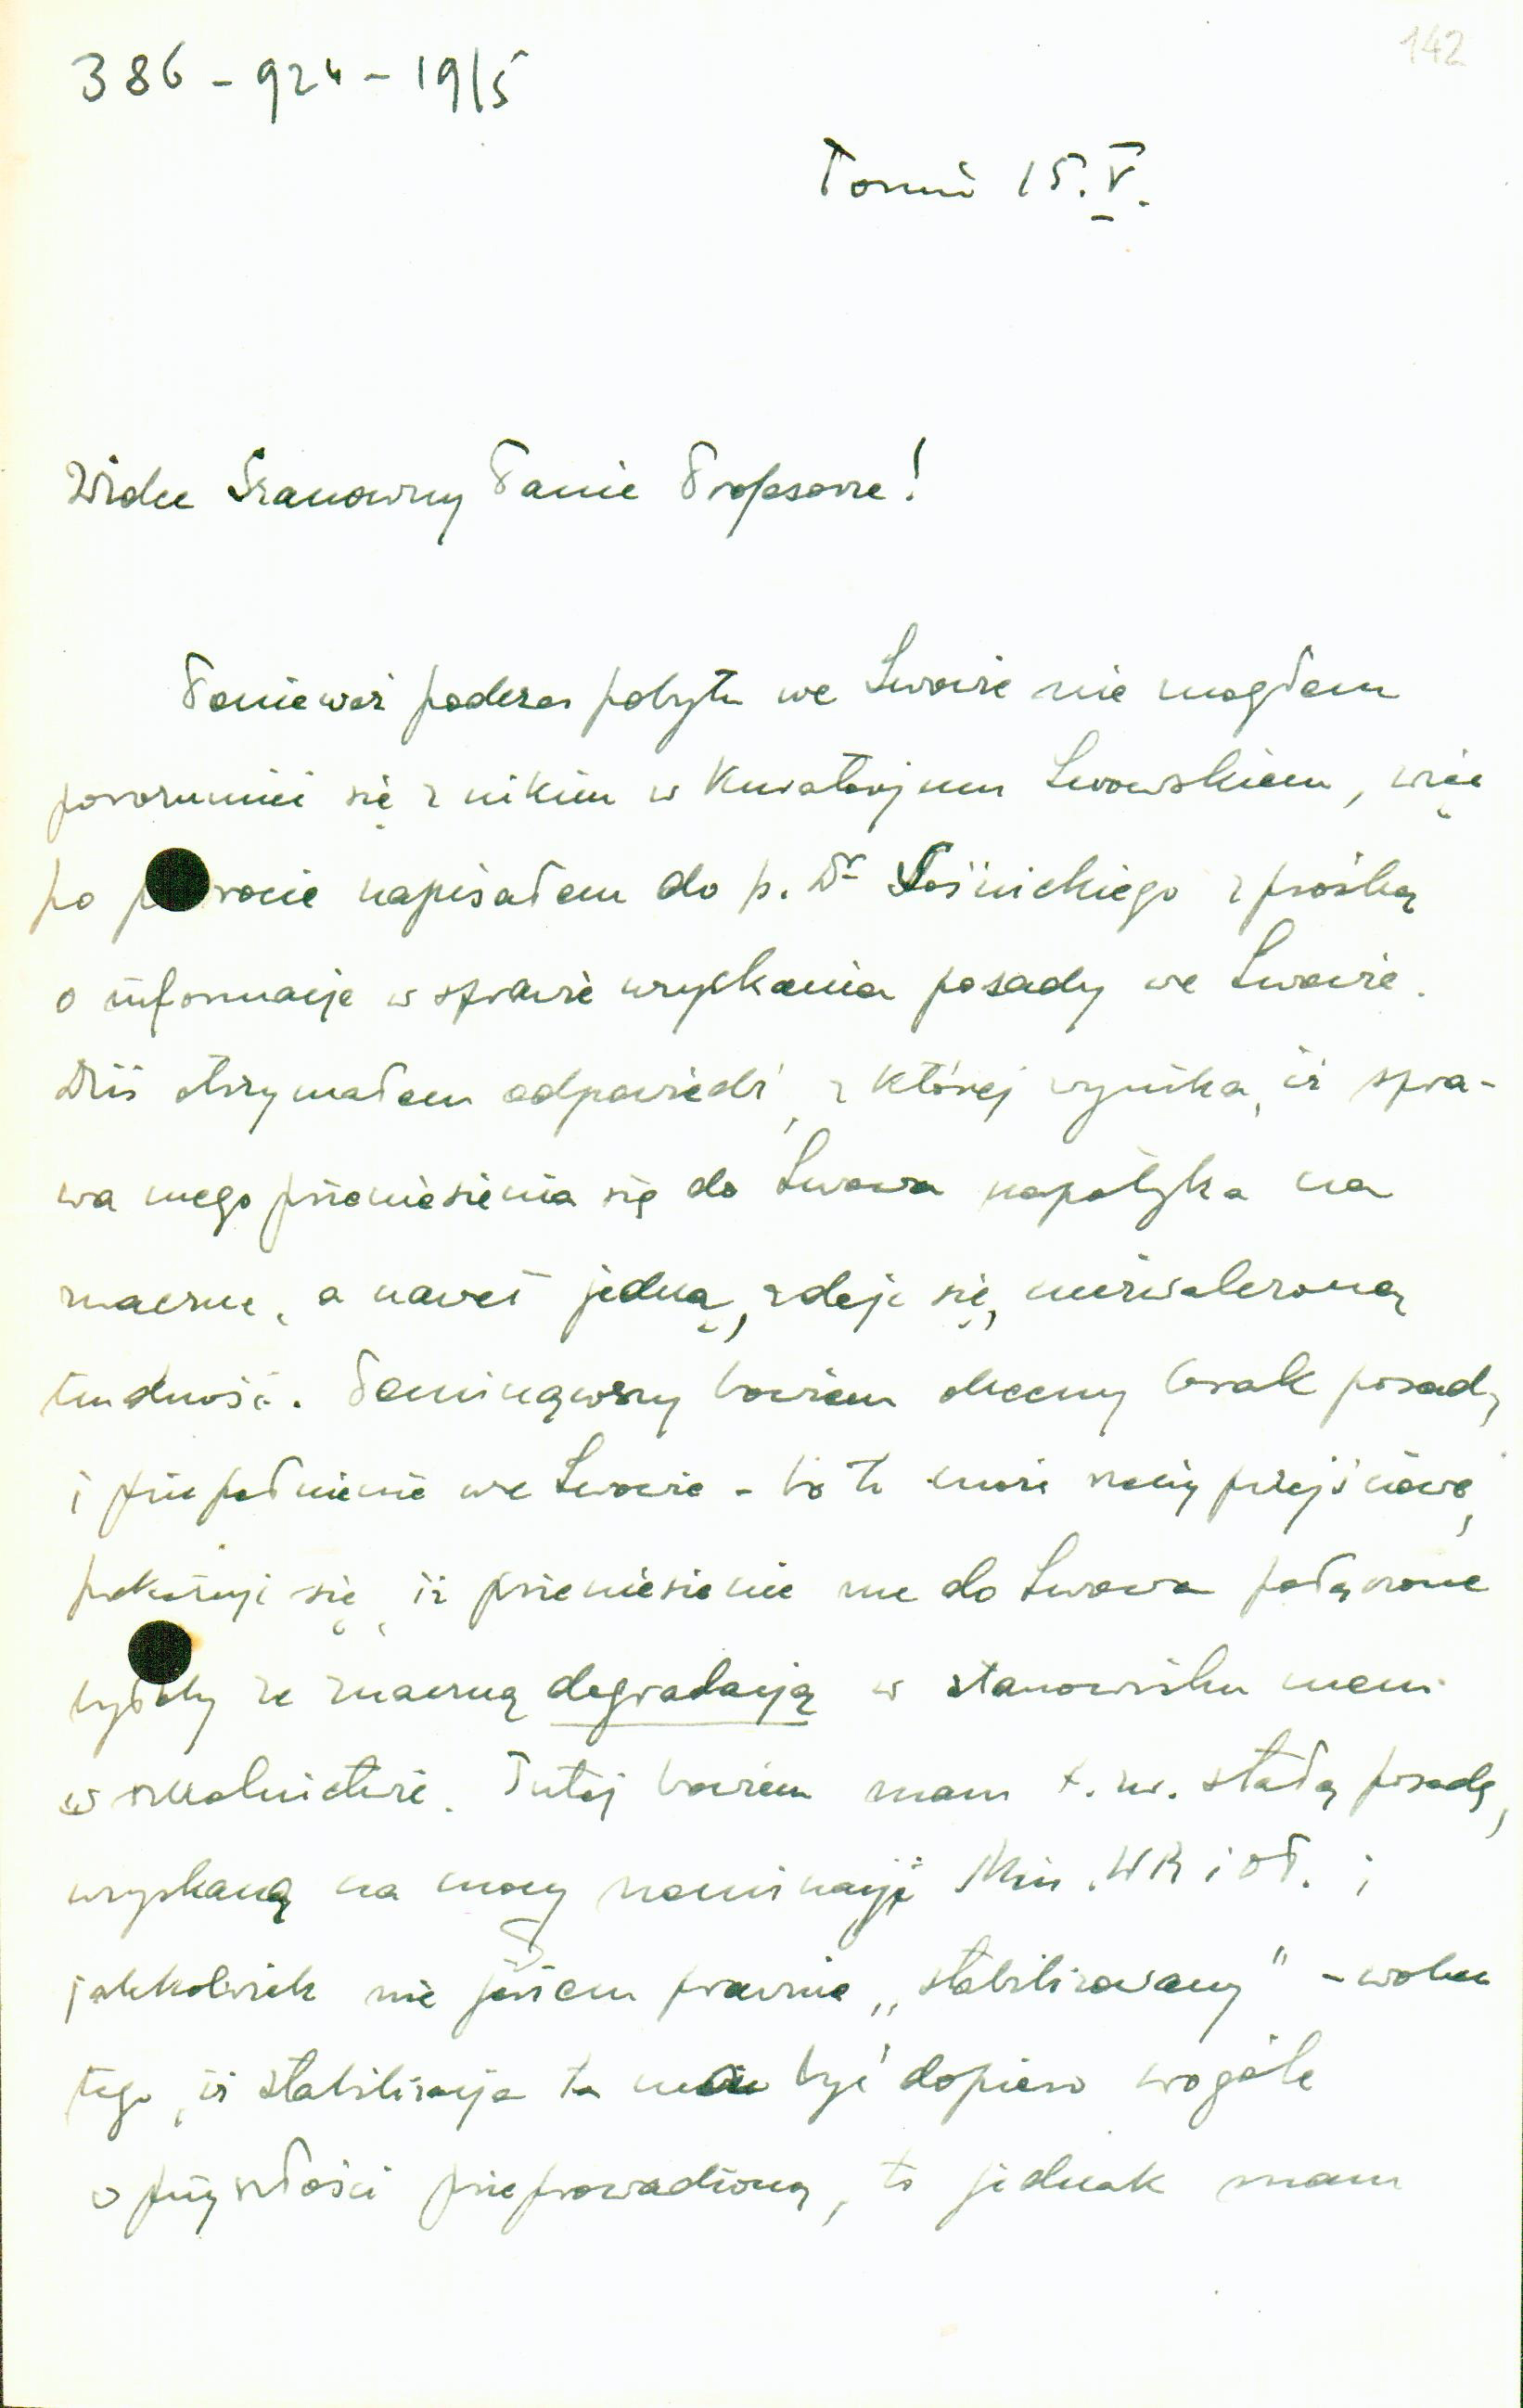 142
386-924-19/5
Toruń 15.V.
Wielce Szanowny Panie Profesorze!
Ponieważ podczas pobytu we Lwowie nie mogłem
porozumieć się z nikim w Kuratorjum Lwowskiem, więc
po powrocie napisałem do p. Dr Łośnickiego z prośbą
o informacje w sprawie uzyskania posady we Lwowie.
Dziś otrzymałem odpowiedź, z której wynika, iż spra-
wa mego przeniesienia się do Lwowa napotyka na
znaczne, a nawet jedną, zdaje się, niezwalczoną
trudność. Pominąwszy bowiem obecny brak posady
i przepełnienie we Lwowie - bo to może rzeczy przejściowe,
pokazuje się, iż przeniesienie me do Lwowa połączone
byłoby ze znaczną degradacją w stanowisku mem
w szkolnictwie. Tutaj bowiem mam t. zw. stałą posadę,
uzyskaną na mocy nominacji Min. WR i OP. i
jakkolwiek nie jestem prawnie „stabilizowany" - wobec
tego, iż stabilizacja ta ma być dopiero wogóle
w przyszłości przeprowadzoną, to jednak mam